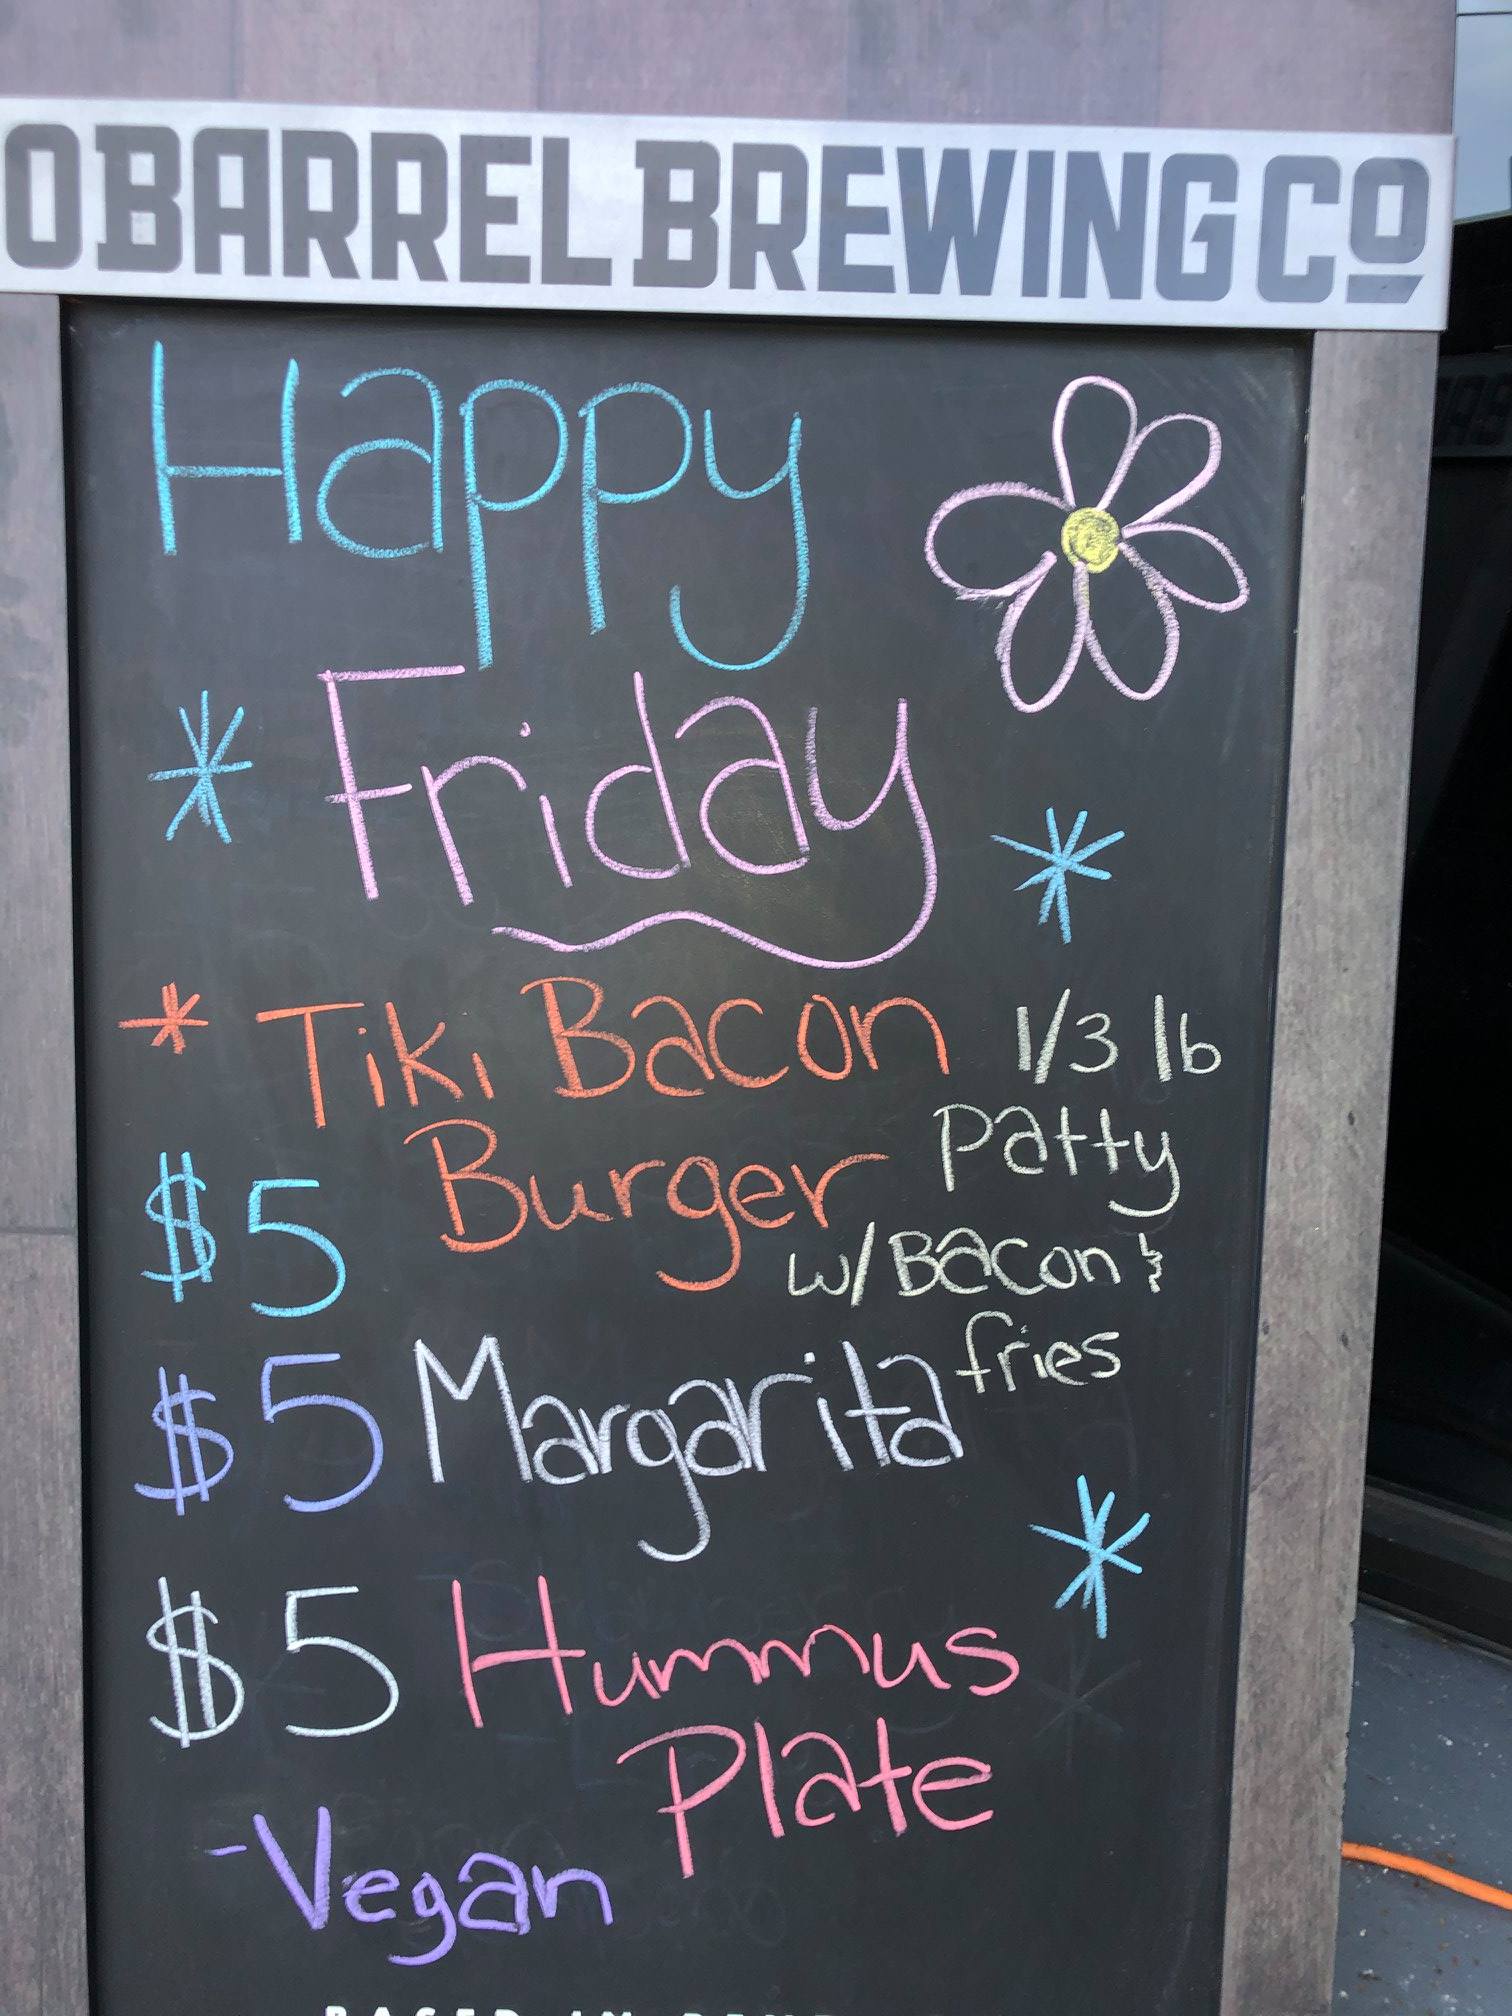 O BARREL BREWING CO
Happy
Friday
* Tiki Bacon 1/3 lb
Burger Patty
$5 w/Bacon &
fries
$5 Margarita
$5 Hummus
Plate
-Vegan
BASED IN